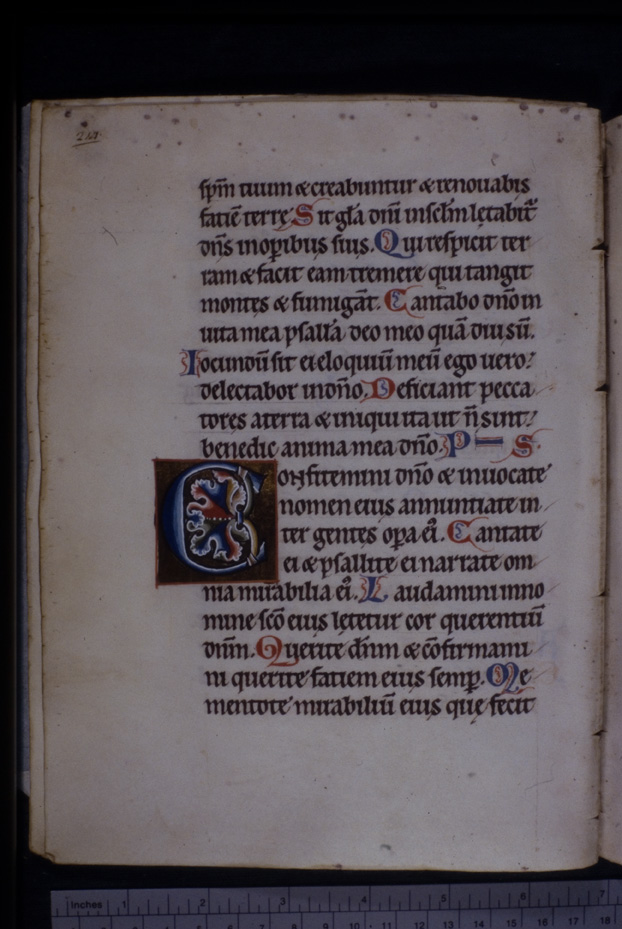 spm̄ tuum & creabuntur & renouabis
fatiē terrę. Sit gl̄a dn̄i in sclm̄ letabit̄
dn̄s in opibus suis. Qui respicit ter
ram & facit eam tremere qui tangit
montes & fumigāt. Cantabo dn̄o in
uita mea psallā deo meo quā diu sū.
Iocundū sit ei eloquiū meū ego uero
delectabor in dn̄o. Deficiant pecca
tores a terra & iniqui ita ut n̄ sint
benedic anima mea dn̄o. P S
Confitemini dn̄o & inuocate
nomen eius annuntiate in
ter gentes opa ei. Cantate
ei & psallite ei narrate om
nia mirabilia ei. Laudamini in no
mine sc̄o eius lętetur cor querentiū
dn̄m. Querite dn̄m & cōfirmami
ni querite fatiem eius semp. Me
mentote mirabiliū eius quę fecit
Inches 1 2 3 4 5 6 7
1 2 3 4 5 6 7 8 9 10 11 12 13 14 15 16 17 18